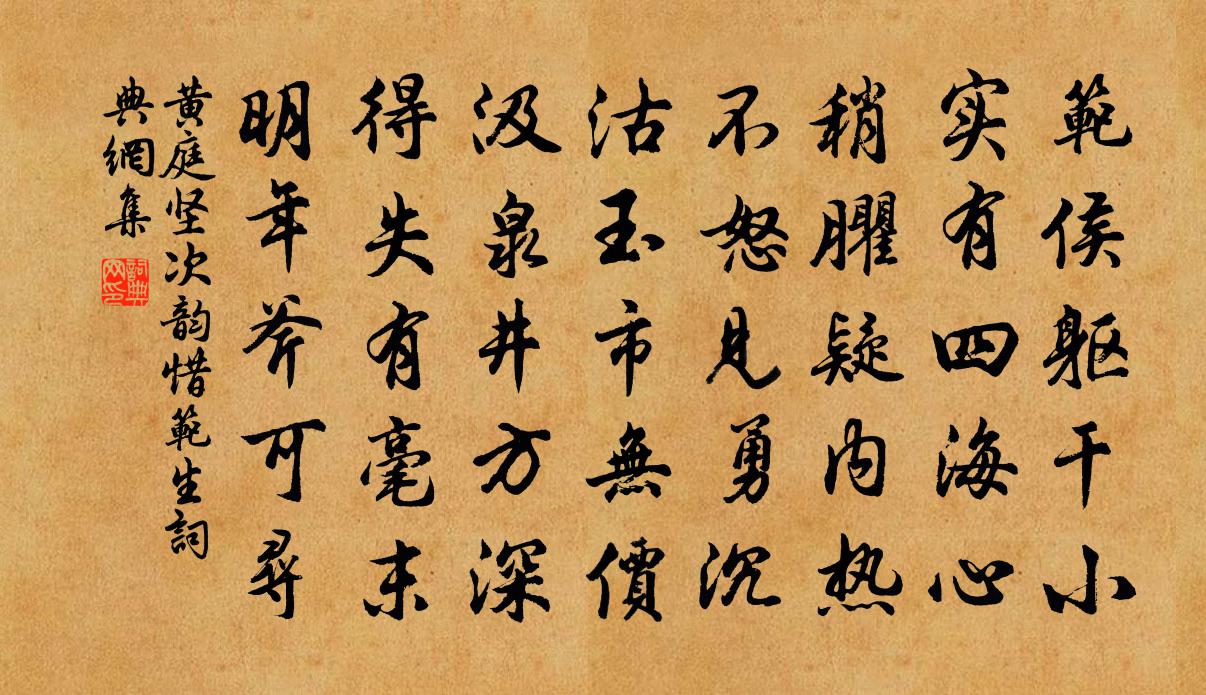 範侯躯干小
实有四海心
稍臞疑内热
不怒見勇沉
沽玉市無價
汲泉井方深
得失有毫末
明年斧可尋
黄庭坚次韵惜範生詞
典網集
詞典
网印